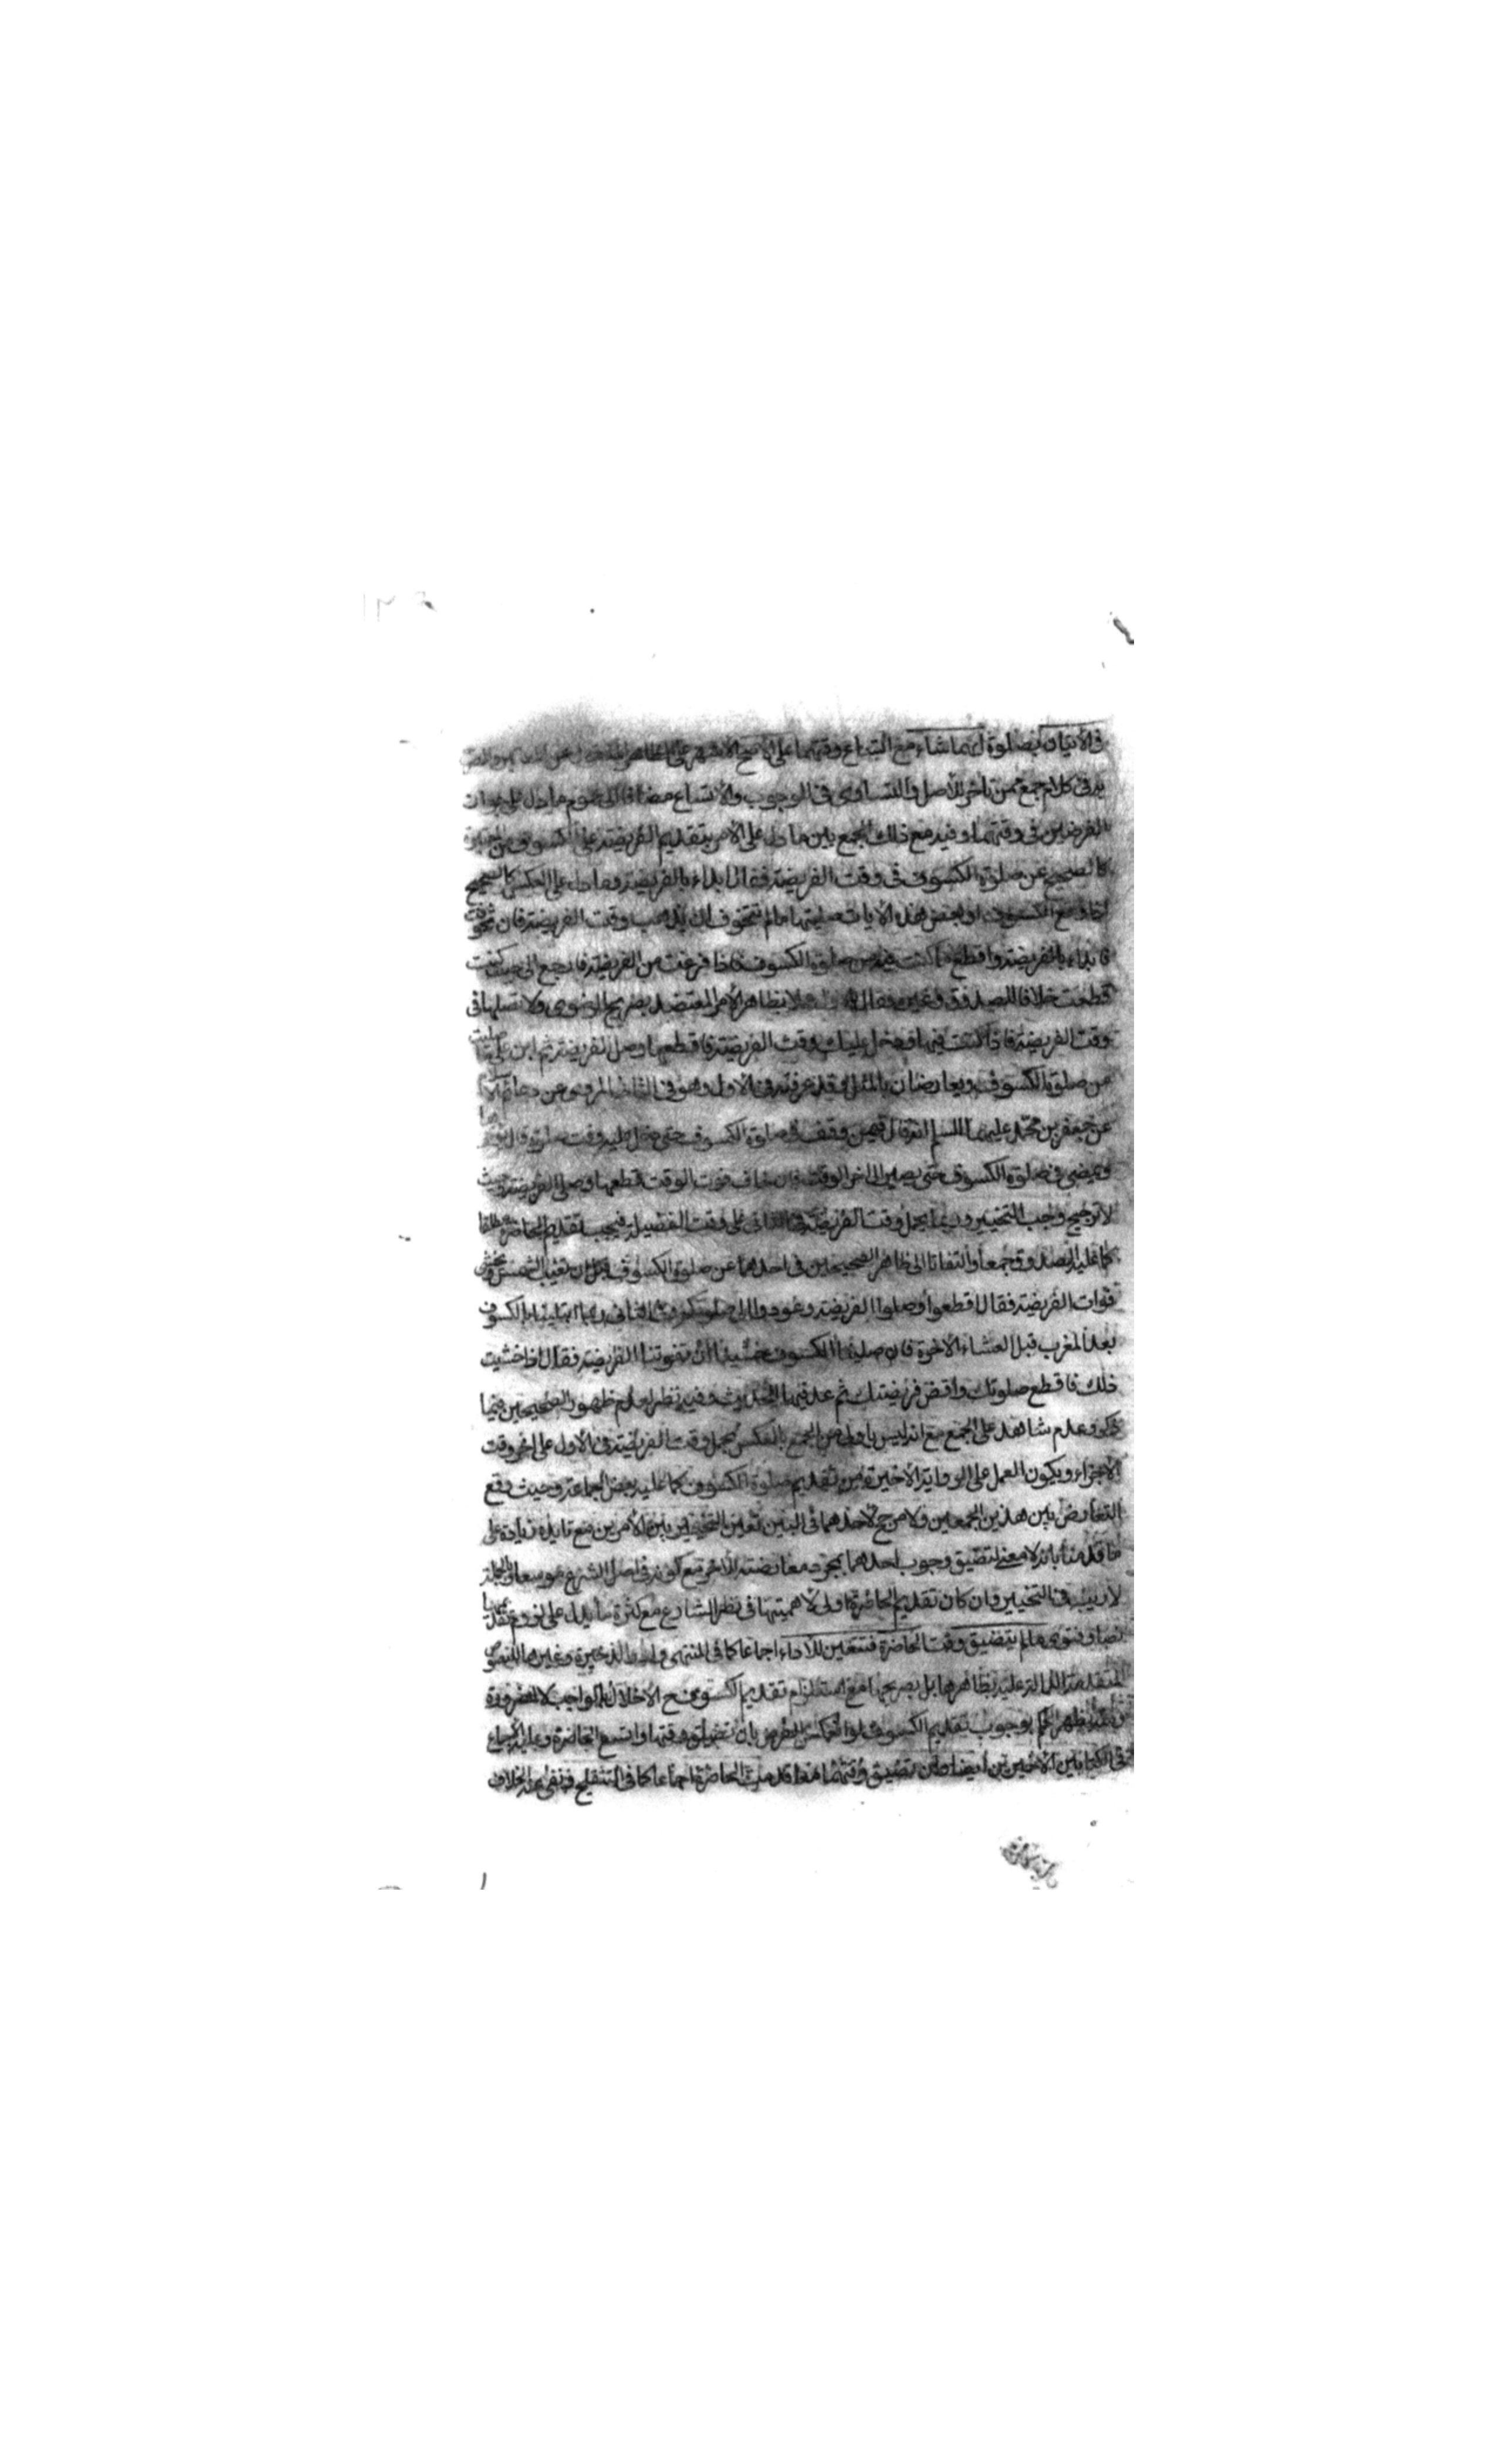 فى الاتيان بصلوة ايهما شاء مع اتساع وقتهما على الاصح الاشهر على الظاهر
فى كلام جمع ممن تاخر للاصل والتساوى فى الوجوب والاتساع مضافا الى عموم ما دل على جواز
الفرضين فى وقتهما وفيه مع ذلك الجمع بين ما دل على الامر بتقديم الفريضة على الكسوف من المعتبرة
كالصحيح عن صلوة الكسوف فى وقت الفريضة فقال ابداء بالفريضة وما دل على العكس كالصحيح
اذا وقع الكسوف او بعض هذه الايات صليتها ما لم تتخوف ان يذهب وقت الفريضة فان تخوفت
فابداء بالفريضة واقطع ما كنت فيه من صلوة الكسوف فاذا فرغت من الفريضة فارجع الى حيث كنت
قطعت خلافا للصدوق وغيره فقال بظاهر الامر المعتضد بصريح الرضوى ولا تصلها فى
وقت الفريضة فاذا كنت فيها ودخل عليك وقت الفريضة فاقطعها وصل الفريضة ثم ابن على ما صليت
من صلوة الكسوف ويعارضان بالمثل قد عرفته فى الاول وهو فى الثانى المروى عن دعائم الا
عن جعفر بن محمد عليهما السلم انه قال فيمن وقف فى صلوة الكسوف حتى دخل عليه وقت صلوة قال
ويمضى فى صلوة الكسوف حتى يصير الى اخر الوقت فان خاف فوت الوقت قطعها وصلى الفريضة وحيث
لا ترجيح وجب التخيير وربما يحمل وقت الفريضة فى الثانى على وقت الفضيلة فيجب تقديم الحاضرة مطلقا
كما عليه الصدوق جمعا والتفاتا الى ظاهر الصحيحين فى احدهما عن صلوة الكسوف قبل ان تغيب الشمس ونخشى
فوات الفريضة فقال اقطعوا وصلوا الفريضة وعودوا الى صلوتكم وفى الثانى ربما ابتلينا بالكسوف
بعد المغرب قبل العشاء الاخرة فان صلينا الكسوف خشينا ان تفوتنا الفريضة فقال اذا خشيت
ذلك فاقطع صلوتك واقض فريضتك ثم عد فيها الحديث وفيه نظر لعدم ظهور الصحيحين فيما
ذكر وعدم شاهد على الجمع مع انه ليس باولى من الجمع بالعكس بحمل وقت الفريضة فى الاول على اخر وقت
الاجزاء ويكون العمل على الرواية الاخيرة من تقديم صلوة الكسوف كما عليه بعض الجماعة وحيث وقع
التعارض بين هذين الجمعين ولا مرجح لاحدهما فى البين تعين التخيير بين الامرين مع تايده زيادة على
ما قدمنا بانه لا معنى لتضيق وجوب احدهما بمجرد معارضته الاخر مع كونه فى اصل الشرع موسعا وبالجملة
لا ريب فى التخيير وان كان تقديم الحاضرة اولى لاهميتها فى نظر الشارع مع كثرة ما يدل على لزوم تقديمها
نصا وفتوى ما لم يتضيق وقت الحاضرة فتتعين للاداء اجماعا كما فى المنتهى والذخيرة وغيرهما للنصوص
المتقدمة الدالة عليه بظاهرها بل بصريحها مع استلزام تقديم الكسوف ح الاخلال بالواجب لا لضرورة
ومنه يظهر الحكم بوجوب تقديم الكسوف لو انعكس الفرض بان تضيق وقتها واتسع الحاضرة وعليه الاجماع
فى الكتابين الاخيرين ايضا ولو تضيق وقتهما معا قدمت الحاضرة اجماعا كما فى التنقيح ونفى عنه الخلاف